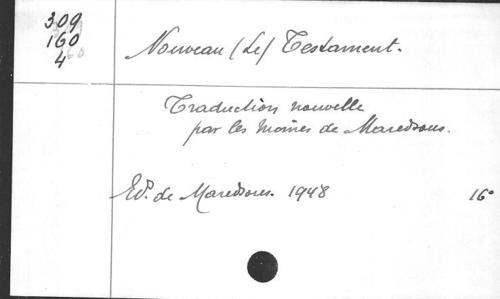 309
160
4
Nouveau (Le) Testament.
Traduction nouvelle
par les moines de Maredsous.
Ed. de Maredsous. 1948 16°